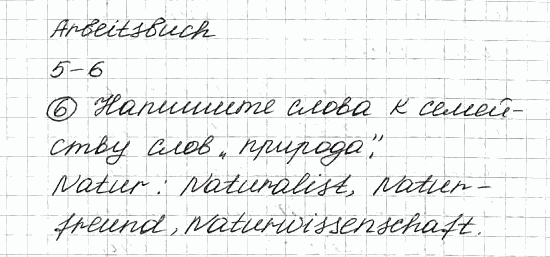 Arbeitsbuch
5-6
⑥ Напишите слова к семей-
ству слов „природа“.
Natur: Naturalist, Natur-
freund, Naturwissenschaft.